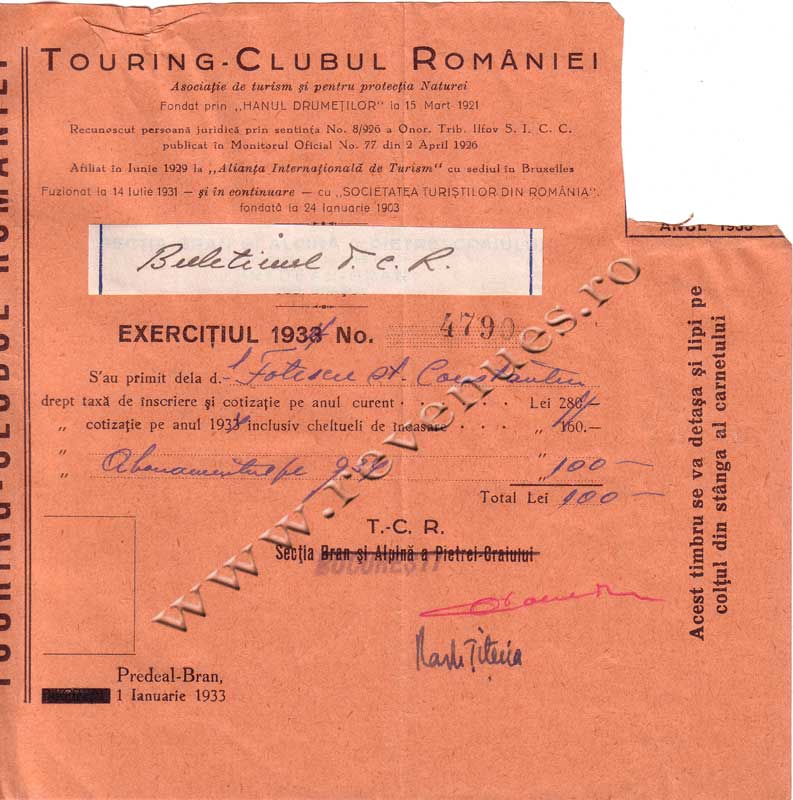 TOURING-CLUBUL ROMÂNIEI
Asociație de turism și pentru protecția Naturei
Fondat prin „HANUL DRUMEȚILOR" la 15 Mart 1921
Recunoscut persoană juridică prin sentința No. 8/926 a Onor. Trib. Ilfov S. I. C. C.
publicat în Monitorul Oficial No. 77 din 2 April 1926
Afiliat în Iunie 1929 la „Alianța Internațională de Turism" cu sediul în Bruxelles
Fuzionat la 14 Iulie 1931 — și în continuare — cu „SOCIETATEA TURIȘTILOR DIN ROMÂNIA".
fondată la 24 Ianuarie 1903
Buletinul T. C. R.
EXERCIȚIUL 1934 No. 4790
S'au primit dela d. Fotescu St. Constantin
drept taxă de înscriere și cotizație pe anul curent . . . . . Lei 280.—
„ cotizație pe anul 1934 inclusiv cheltueli de incasare . . . . „ 160.—
„ Abonamentul pe 934 „ 100 —
Total Lei 100 —
T.-C. R.
Secția Bran și Alpină a Pietrei-Craiului
BUCUREȘTI
Predeal-Bran,
1 Ianuarie 1933
ANUL 1933
Acest timbru se va detașa și lipi pe
colțul din stânga al carnetului
TOURING-CLUBUL ROMÂNIEI
www.revenues.ro